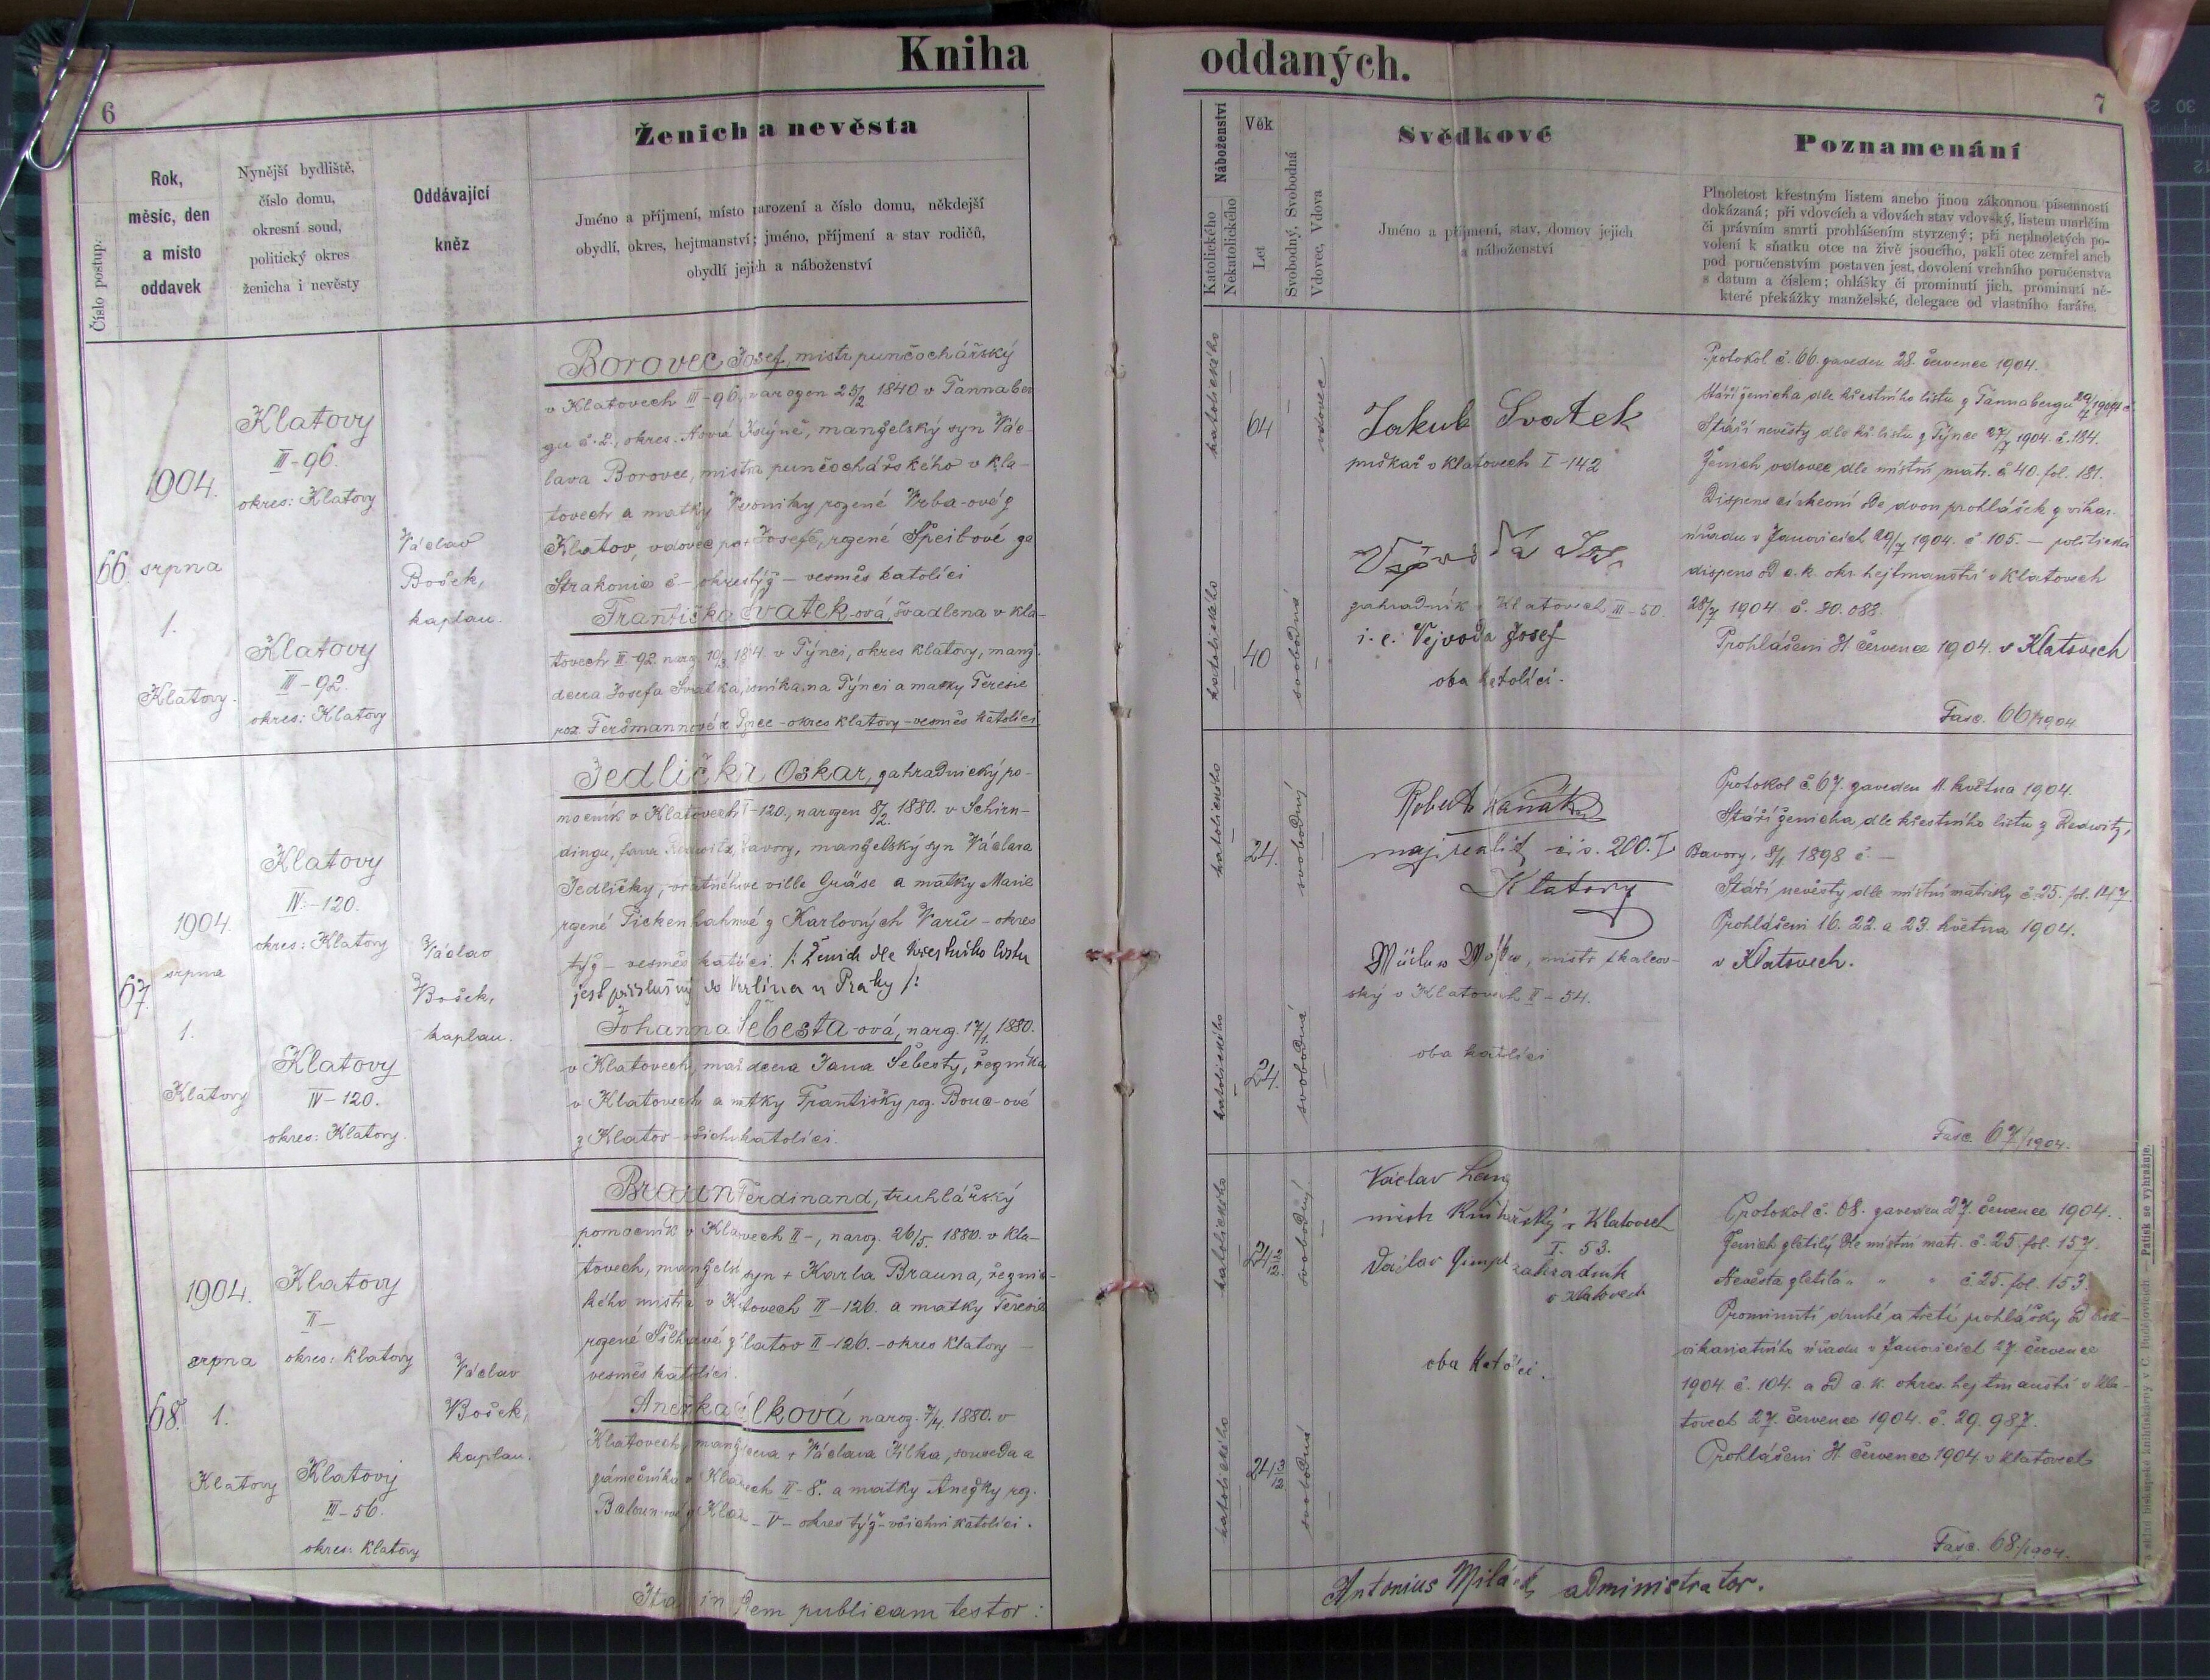 Kniha
6
Číslo postup.
Rok,
měsíc, den
a místo
oddavek
Nynější bydliště,
číslo domu,
okresní soud,
politický okres
ženicha i nevěsty
Oddávající
kněz
Ženich a nevěsta
Jméno a příjmení, místo narození a číslo domu, někdejší
obydlí, okres, hejtmanství; jméno, příjmení a stav rodičů,
obydlí jejich a náboženství
66.
1904.
srpna
1.
Klatovy.
Klatovy
III-96.
okres: Klatovy
Klatovy
III-92.
okres: Klatovy
Václav
Bošek,
kaplan.
Borovec Josef, mistr punčochářský
v Klatovech III-96, narozen 25/2 1840 v Tannaber
gu č. 2., okres. Nová Kdyně, manželský syn Vác-
lava Borovce, mistra punčochářského v Kla-
tovech a matky Veroniky rozené Vrba-ové z
Klatov, vdovec po + Josefě, rozené Špeitové ze
Strakonic č - okres týž - vesměs katolíci
Františka Svatek-ová, švadlena v Kla-
tovech III-92. naroz. 10/3 1864. v Týnci, okres Klatovy, manž.
dcera Josefa Svatka, na Týnci a matky Teresie
roz. Feršmannové z Týnce - okres Klatovy - vesměs katolíci
67.
1904.
srpna
1.
Klatovy
Klatovy
IV-120.
okres: Klatovy
Klatovy
IV-120.
okres: Klatovy.
Václav
Bošek,
kaplan.
Jedlička Oskar, zahradnický po-
mocník v Klatovech I-120., narozen 8/2. 1880. v Schirn-
dingu, fara Redwitz, Bavory, manželský syn Václava
Jedličky, ve ville Gräse a matky Marie
rozené Pickenhahnové z Karlových Varů - okres
týž - vesměs katolíci. /: Ženich dle křestního listu
jest příslušný do Verlína u Prahy :/
Johanna Šebesta-ová, naroz. 17/1. 1880.
v Klatovech, manž dcera Jana Šebesty, řezníka
v Klatovech a matky Františky roz. Bouc-ové
z Klatov - všichni katolíci.
68.
1904.
srpna
1.
Klatovy
Klatovy
II-
okres: Klatovy
Klatovy
III-56.
okres: Klatovy
Václav
Bošek,
kaplan.
Braun Ferdinand, truhlářský
pomocník v Klatovech II-, naroz. 26/5. 1880. v Kla-
tovech, manželský syn + Karla Brauna, řeznic-
kého mistra v Klatovech II-126. a matky Teresie
rozené Šilhavé z Klatov II-126. - okres Klatovy -
vesměs katolíci.
Anežka Jílková naroz. 7/4. 1880. v
Klatovech, manž. dcera + Václava Jílka, souseda a
zámečníka v Klatovech II-8. a matky Anežky roz.
- V - okres týž - všichni katolíci.
Ita in fidem publicam testor:
oddaných.
7
Náboženství
Katolického
Nekatolického
Věk
Let
Svobodný, Svobodná
Vdovec, Vdova
Svědkové
Jméno a příjmení, stav, domov jejich
a náboženství
Poznamenání
Plnoletost křestným listem anebo jinou zákonnou písemností
dokázaná; při vdovcích a vdovách stav vdovský, listem umrlčím
či právním smrti prohlášením stvrzený; při neplnoletých po-
volení k sňatku otce na živě jsoucího, pakli otec zemřel aneb
pod poručenstvím postaven jest, dovolení vrchního poručenstva
s datum a číslem; ohlášky či prominutí jich, prominutí ně-
které překážky manželské, delegace od vlastního faráře.
katolického
64
vdovec
katolického
40
svobodná
Jakub Svatek
puškař v Klatovech I-142
zahradník v Klatovech III-50.
i. e. Vejvoda Josef
oba katolíci.
Protokol č. 66. zaveden 28. července 1904.
Stáří ženicha dle křestního listu z Tannabergu 1904
Stáří nevěsty dle kř. listu z Týnce 27/7 1904. č. 184.
Ženich vdovec dle místní matr. č 40. fol. 181.
Dispens církevní ode dvou prohlášek z vikar.
úřadu v Janovicích 29/7 1904. č 105. - politická
dispens od c. k. okr. hejtmanství v Klatovech
28/7 1904. č. 30.088.
Prohlášeni 31. července 1904. v Klatovech
Fasc. 66/1904
katolického
24.
svobodný
katolického
24.
svobodná
Robert
maj. realit, čís. 200. I
Klatovy
mistr tkalcov-
ský v Klatovech II-54.
oba katolíci
Protokol č. 67. zaveden 11. května 1904.
Stáří ženicha dle křestního listu z Redwitz,
Bavory, 8/1 1898 č. -
Stáří nevěsty dle místní matriky č. 25. fol. 147
Prohlášeni 16. 22. a 23. května 1904.
v Klatovech.
Fasc. 67/1904.
katolického
24
svobodný
katolického
24
svobodná
Václav Lang
mistr knihařský v Klatovech
I. 53.
Václav Gimpl zahradník
v Klatovech
oba katolíci.
Protokol č. 68. zaveden 27. července 1904.
Ženich zletilý dle místní matr. č. 25. fol. 157.
Nevěsta zletilá " " " č 25. fol. 153.
Prominutí druhé a třetí prohlášky od
vikariatního úřadu v Janovicích 27. července
1904. č. 104. a od c. k. okres. hejtmanství v Kla-
tovech 27. července 1904. č. 29.987.
Prohlášeni 31. července 1904 v Klatovech
Fasc. 68/1904.
Antonius Milá administrator.
a sklad biskupské knihtiskárny v Č. Budějovicích. — Patisk se vyhražuje.